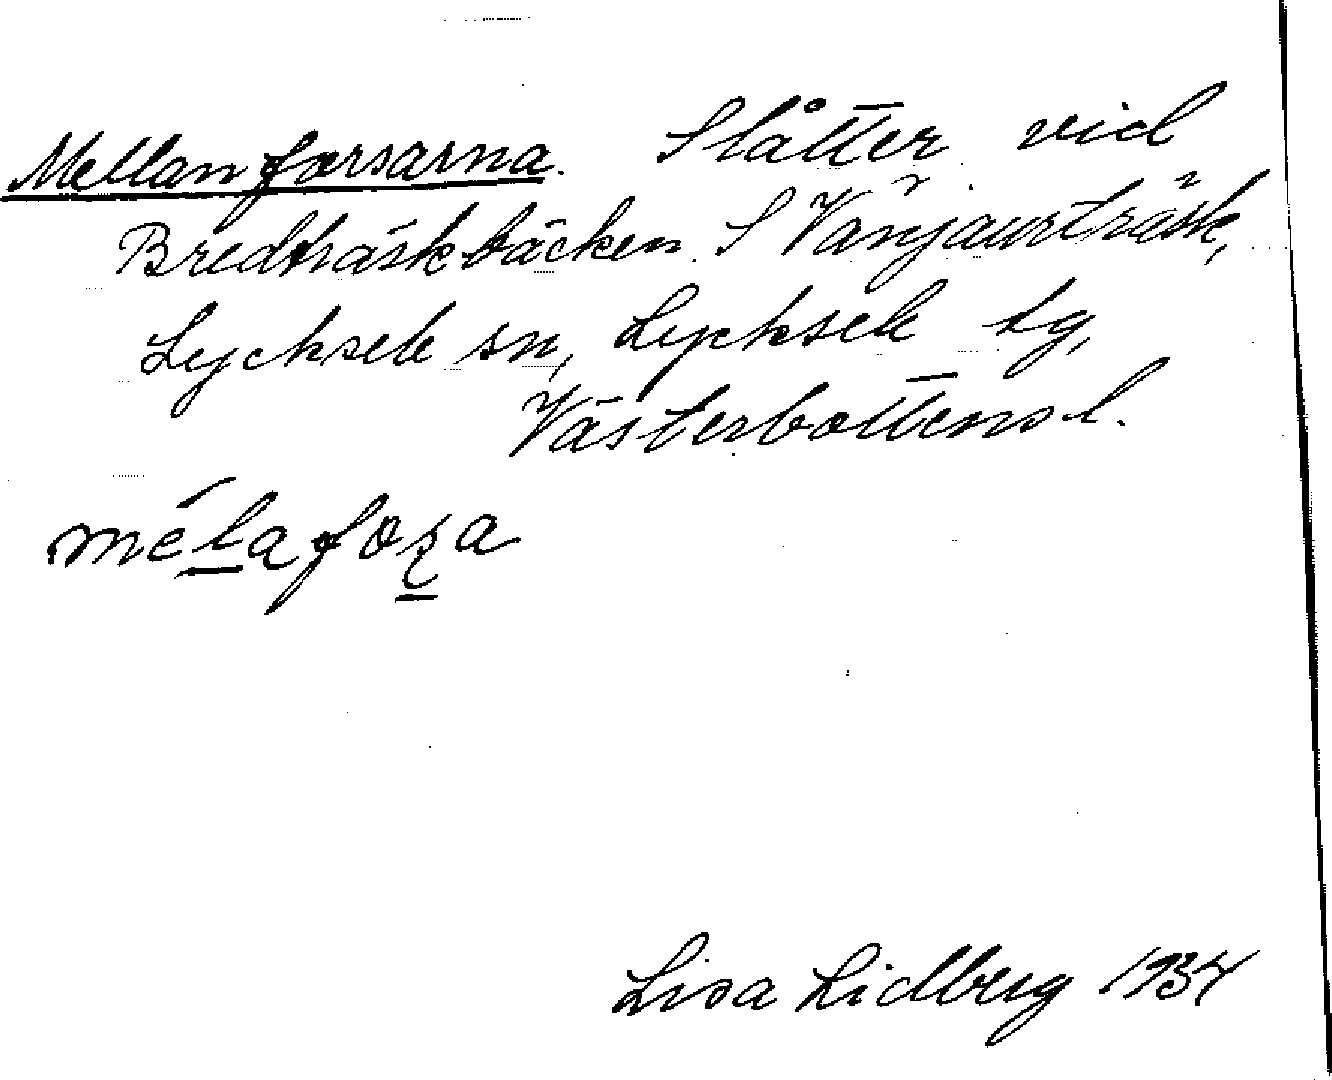 Mellanforsarna. Slåtter vid
Bredträskbäcken. S Vänjaurträsk,
Lycksele sn, Lycksele tg,
Västerbottens l.
Lisa Lidberg 1934